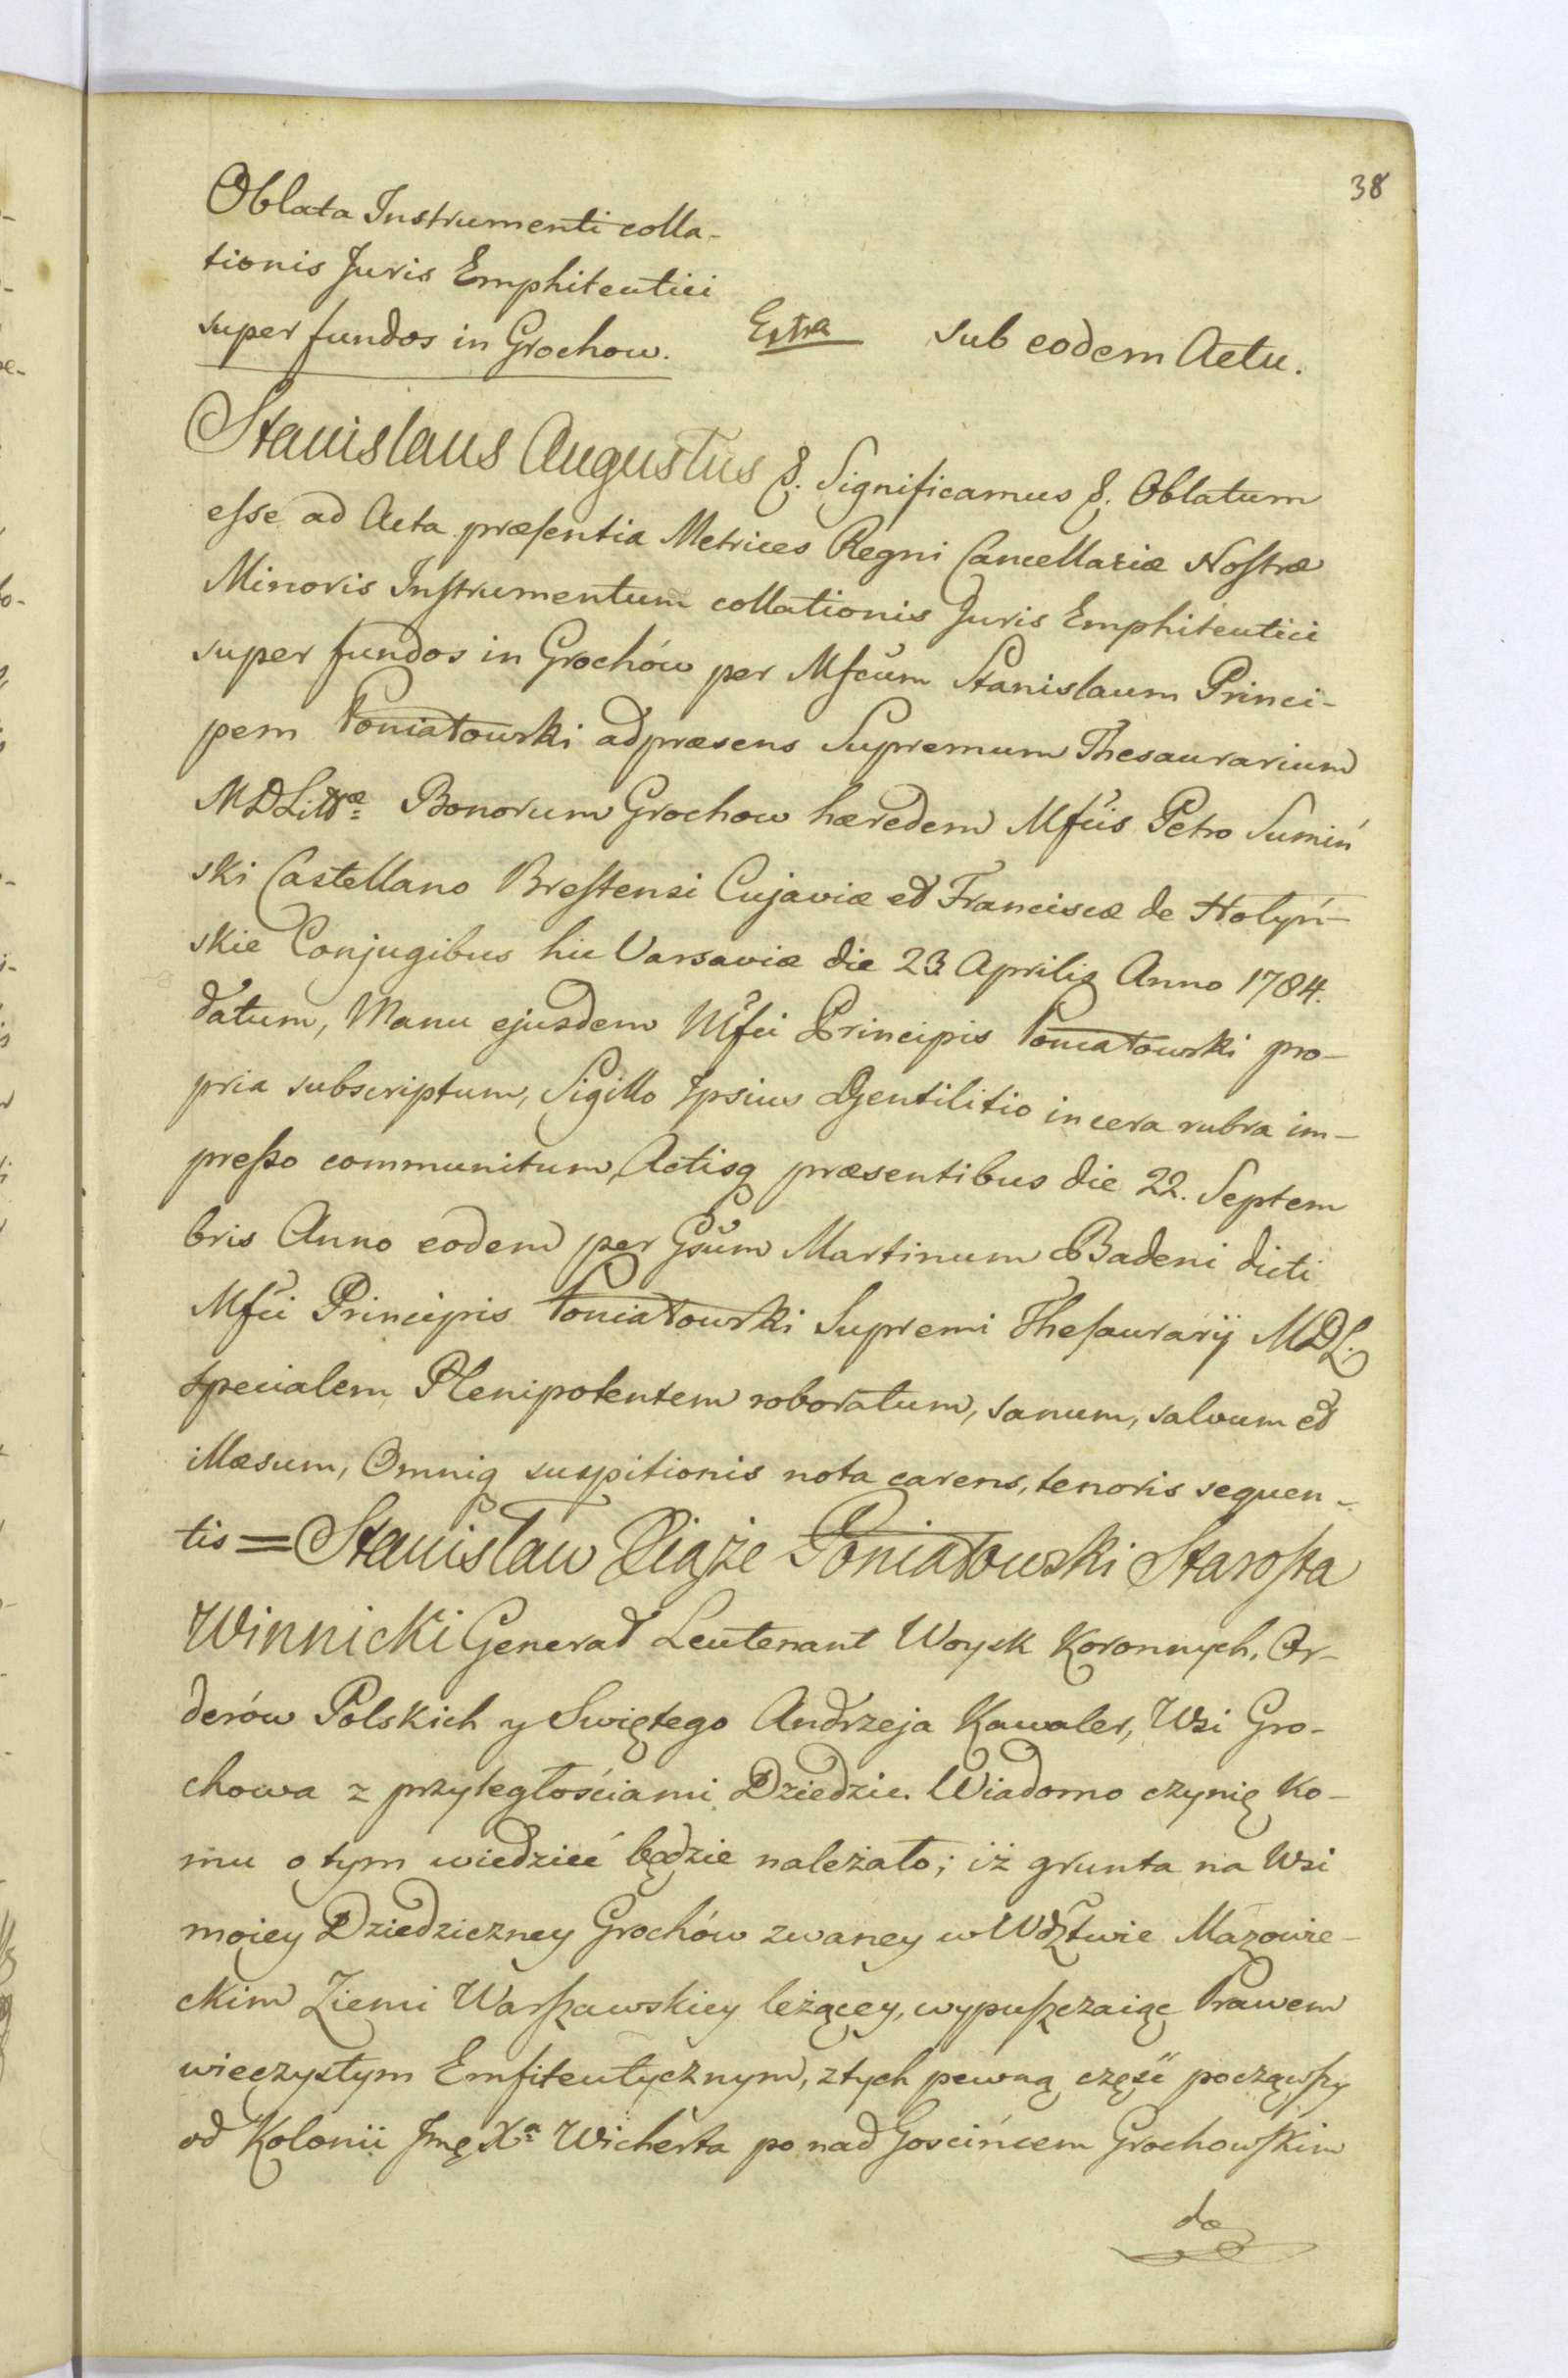 38
Oblata Instrumenti colla-
tionis Juris Emphiteutici
super fundos in Grochow. Extra sub eodem Actu.
Stanislaus Augustus &. Significamus &. Oblatum
esse ad Acta præsentia Metrices Regni Cancellariæ Nostræ
Minoris Instrumentum collationis Juris Emphiteutici
super fundos in Grochów per Mfcum Stanislaum Princi-
pem Poniatowski adpræsens Supremum Thesaurarium
MDLittæ Bonorum Grochow hæredem Mfcis Petro Sumiń
ski Castellano Brestensi Cujaviæ et Francisca de Hołyń-
skie Conjugibus hic Varsaviæ die 23 Aprilis Anno 1784.
datum, Manu ejusdem Mfci Principis Poniatowski pro-
pria subscriptum, Sigillo Ipsius Gentilitio in cera rubra im-
presso communitum, Actisq præsentibus die 22. Septem
bris Anno eodem per Gsum Martinum Badeni dicti
Mfci Principis Poniatowski Supremi Thesaurarij MDL.
specialem Plenipotentem roboratum, sanum, salvum et
illæsum, Omniq suspitionis nota carens, tenoris sequen-
tis = Stanisław Xiąże Poniatowski Starosta
Winnicki Generał Leutenant Woysk Koronnych, Or-
derów Polskich y Swiętego Andrzeja Kawaler, Wsi Gro-
chowa z przyległościami Dziedzic. Wiadomo czynię Ko-
mu o tym wiedzieć będzie należało; iż grunta na Wsi
moiey Dziedziczney Grochów zwaney w Wdztwie Mazowie-
ckim Ziemi Warszawskiey leżącey, wypuszczaiąc Prawem
wieczystym Emfiteutycznym, z tych pewną część począwszy
od Kolonii Jmę Xa Wicherta po nad Gościńcem Grochowskim
do